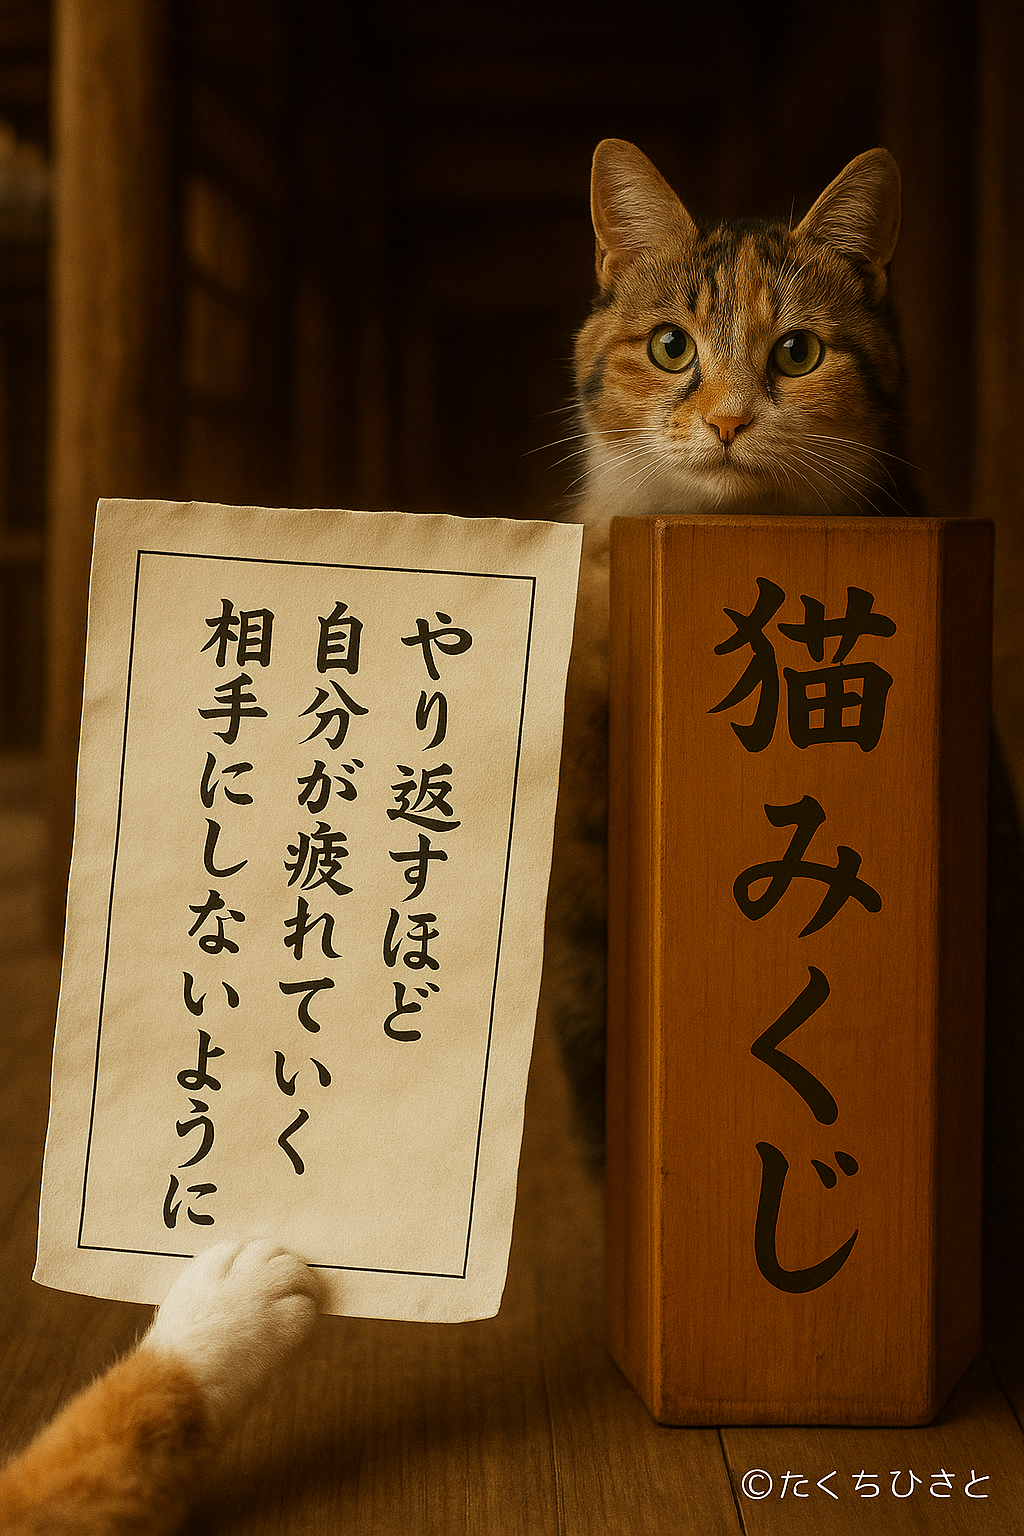 やり返すほど
自分が疲れていく
相手にしないように
猫みくじ
©たくちひさと